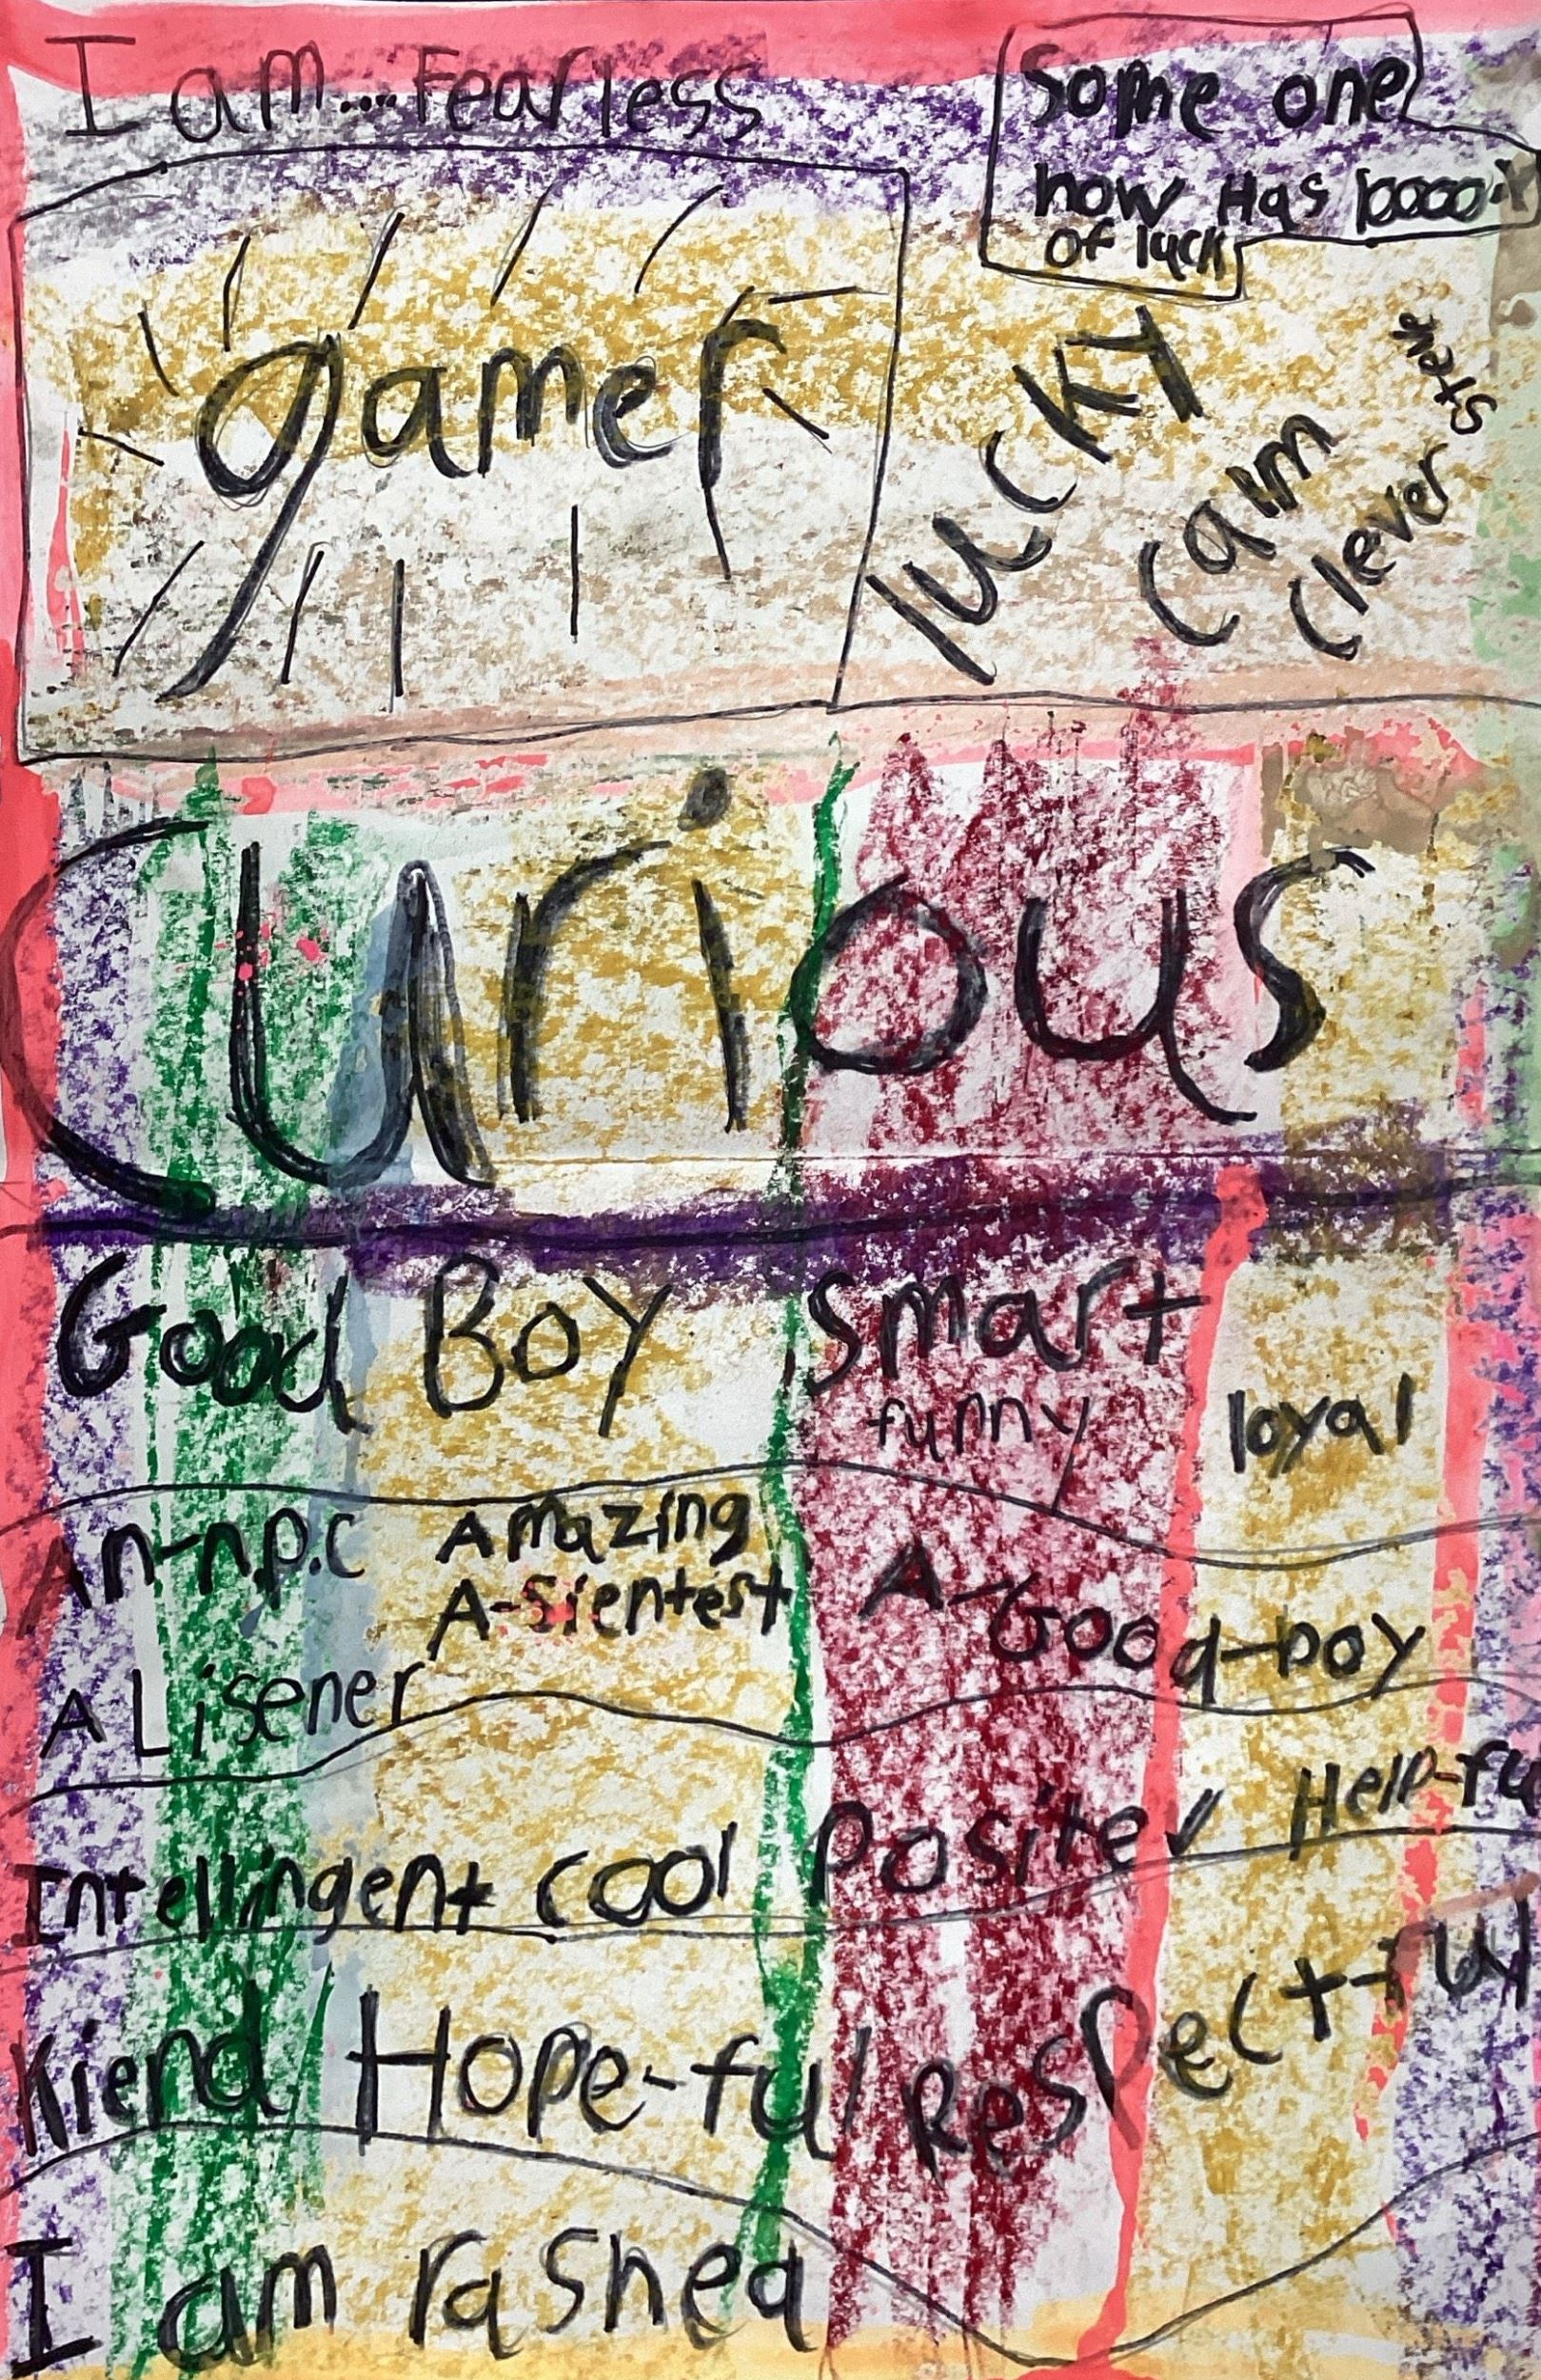 I am....Fearless
Some one
how Has
of luck
gamer
lucky
Calm
Clever
Curious
Good Boy Smart
funny loyal
An-n.p.c Amazing
A-Sientest
A-Good-boy
A Lisener
Intellingent cool Positev Help-fu
Kiend Hope-ful Respect-ful
I am rashed